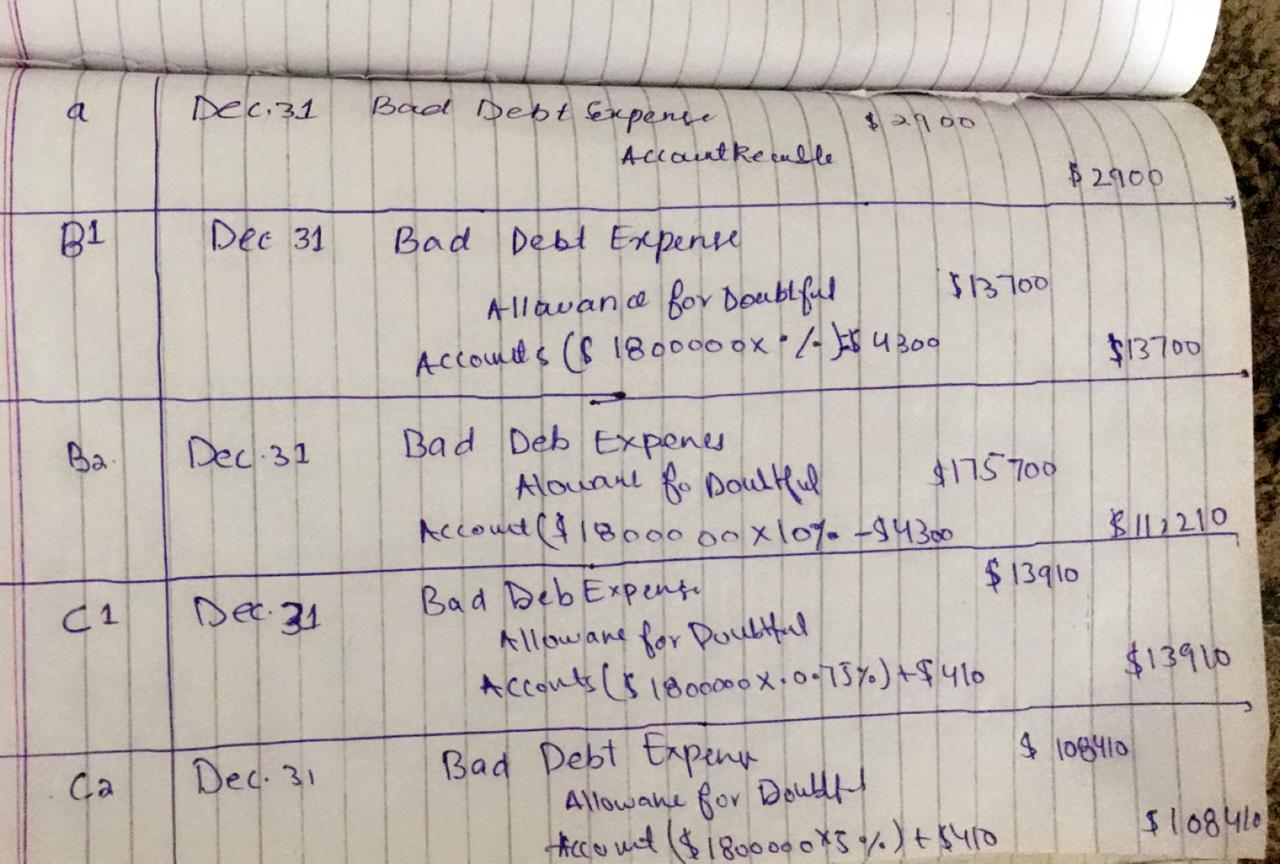 a Dec.31 Bad Debt Expense $2900
Account
$2900
B1 Dec 31 Bad Debt Expense
Allauance for Doubtful $13700
Accounts ($ 1800000x ./.)=$4300 $13700
B2. Dec.31 Bad Deb Expenes
Alouane fo Doultful $175700
Account($1800000x10% -$4300 $112210
C1 Dec.31 Bad Deb Expense $13910
Allowane for Doubtful
Accounts($1800000x.0.75%)+$410 $13910
C2 Dec.31 Bad Debt Expense $ 108410
Allowane for Doubtful
Account($1800000x5%)+$410 $108410